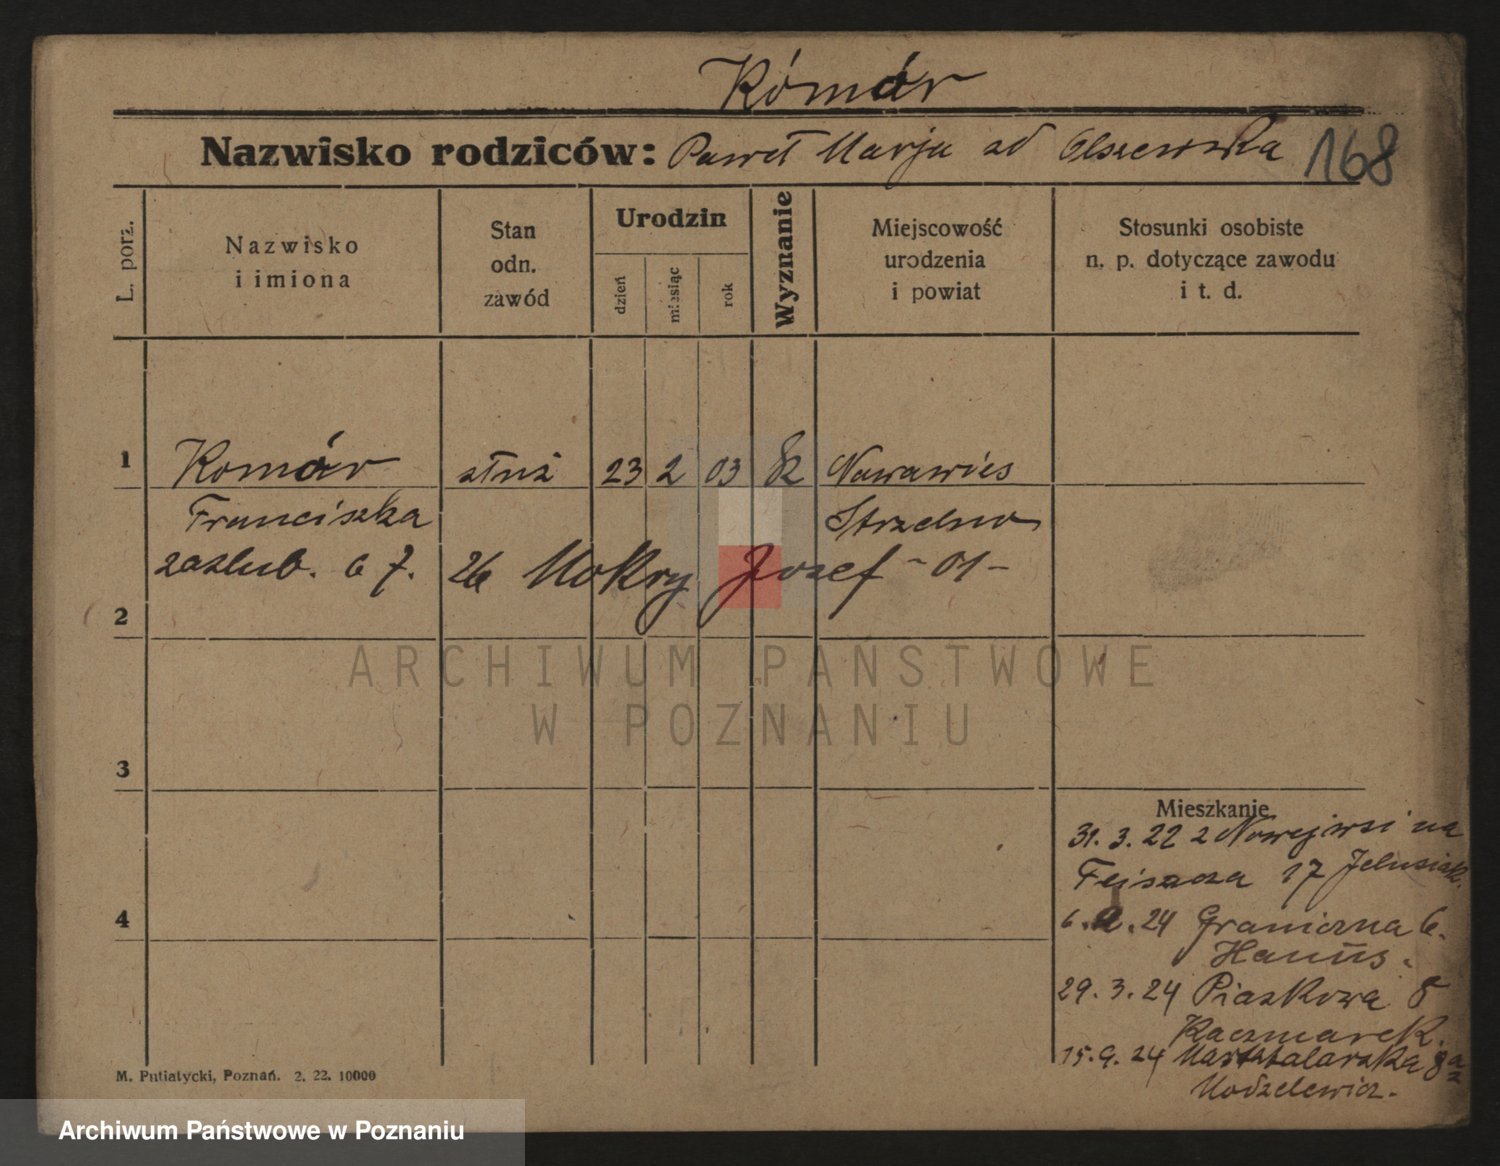 Kómór
Nazwisko rodziców: Paweł Marja zd Olszewska 168
L. porz.
Nazwisko
i imiona
Stan
odn.
zawód
Urodzin
dzień
miesiąc
rok
Wyznanie
Miejscowość
urodzenia
i powiat
Stosunki osobiste
n. p. dotyczące zawodu
i t. d.
1 Komór służ 23 2 03 Nowawies
Franciszka Strzelno
zaślub. 6 7. 26 Mokry Józef - 01 -
2
3
4
Mieszkanie
31. 3. 22 z Nowejwsi na
17
6. 24 Graniczna 6.
29. 3. 24 Piaskowa 8
Kaczmarek.
15. 9. 24 Masztalarska 8a
Modzelewicz.
M. Putiatycki, Poznań. 2. 22. 10000
ARCHIWUM PAŃSTWOWE
W POZNANIU
Archiwum Państwowe w Poznaniu